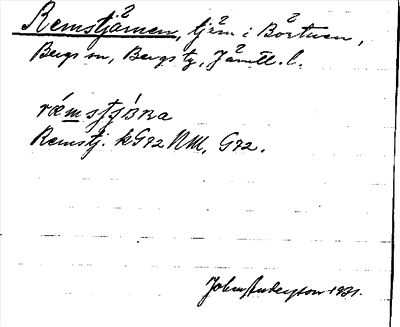 Remstjärnen, tjärn i Börtnen,
Bergs sn, Bergs tg, Jämtl. l.
Remstj. kG92 NM, G92.
John Anderson 1931.